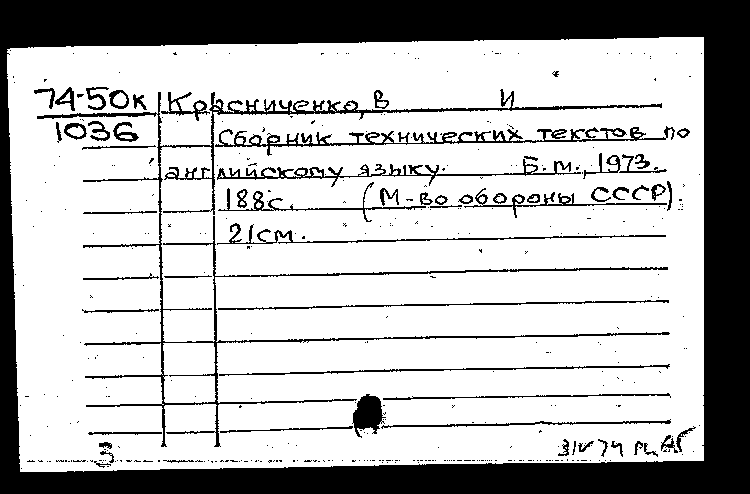 74-50к Красниченко, В И
1036 Сборник технических текстов по
английскому языку. Б.м., 1973.
188с. (М-во обороны СССР).
21см.
3